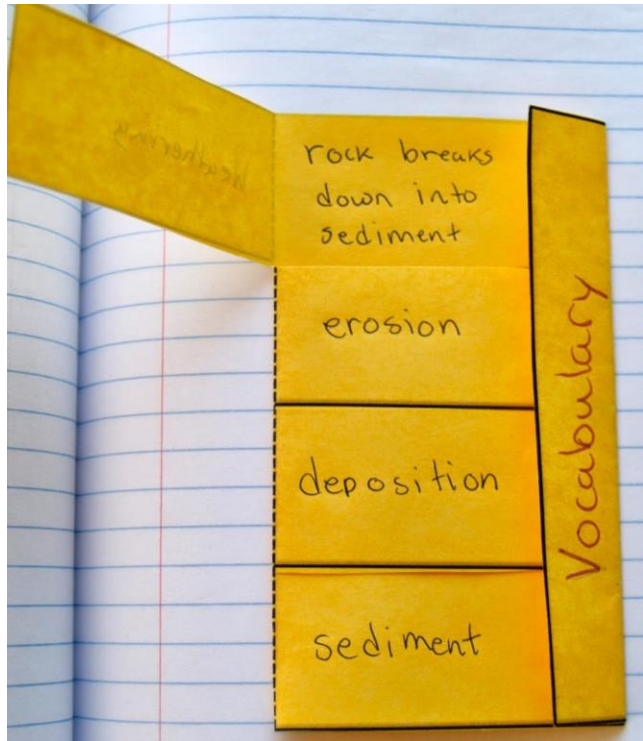 Weathering
rock breaks
down into
sediment
erosion
deposition
sediment
Vocabulary